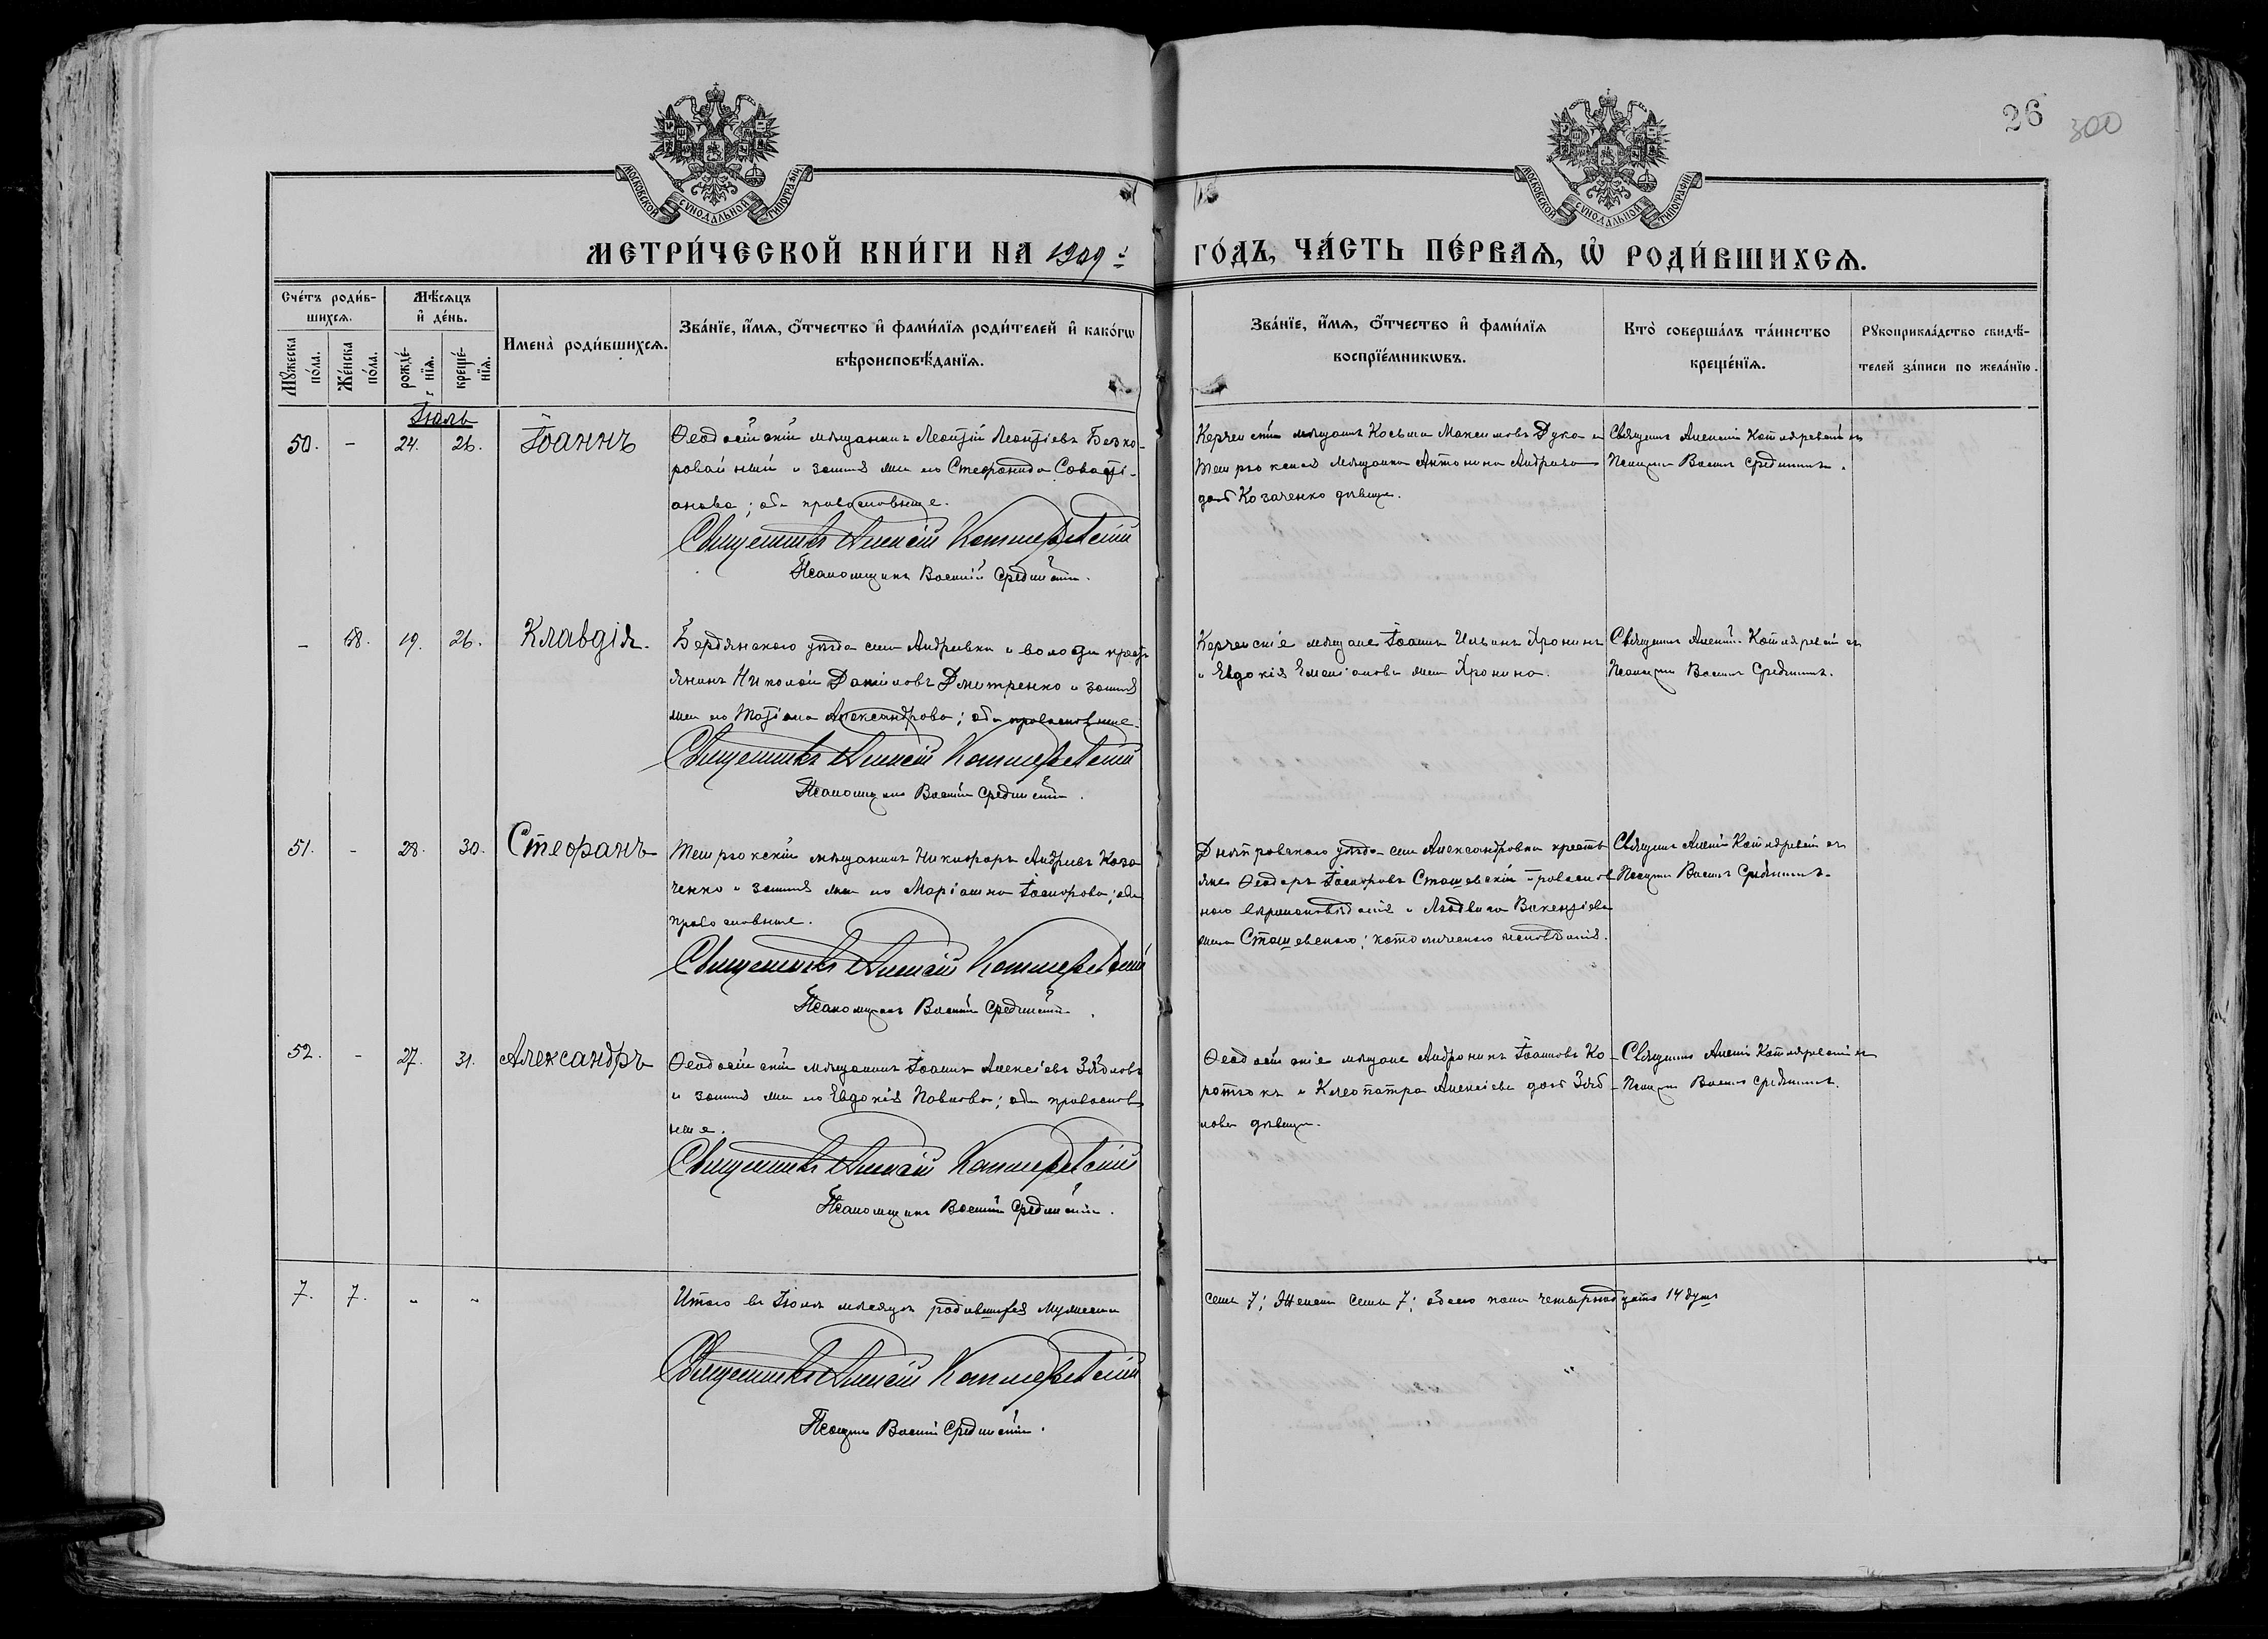 26
300
МОСКОВСКОЙ СѴНОДАЛЬНОЙ ТИПОГРАФІИ
МОСКОВСКОЙ СѴНОДАЛЬНОЙ ТИПОГРАФІИ
МЕТРИ́ЧЕСКОЙ КНИ́ГИ НА 1909 й
ГО́ДЪ, ЧА́СТЬ ПЕ́РВАѦ, Ѡ҆ РОДИ́ВШИХСѦ.
Сче́тъ роди́в-
шихсѧ.
Мѣ́сѧцъ
и҆ де́нь.
Мꙋ́жеска
по́ла.
Же́нска
по́ла.
рожде́-
нїѧ.
креще́-
нїѧ.
Имена̀ роди́вшихсѧ.
Зва́нїе, и҆́мѧ, ѻ҆́тчество и҆ фами́лїѧ роди́телей и҆ како́гѡ
вѣроисповѣ́данїѧ.
Зва́нїе, и҆́мѧ, ѻ҆́тчество и҆ фами́лїѧ
воспрїе́мникѡвъ.
Кто̀ соверша́лъ та́инство
креще́нїѧ.
Рꙋкоприкла́дство свидѣ́-
телей за́писи по жела́нїю.
Іюль
50. - 24. 26. Іоаннъ
Ѳеодосійскій мѣщанинъ Леонтій Леонтіевъ Безко-
ровайный и законная жена его Стефанида Савваті-
анова; оба православные.
Священникъ Алексій Котляревскій
Псаломщикъ Василій Срединскій.
Керченскій мѣщанинъ Косьма Максимовъ Дука и
Темрюкская мѣщанка Антонина Андреева
дочь Козаченко дѣвица.
Священникъ Алексій Котляревскій съ
Псаломщ Василіемъ Срединскимъ.
- 48. 19. 26. Клавдія.
Бердянскаго уѣзда села Андреевки и волости кресть
янинъ Николай Даніиловъ Дмитренко и законная
жена его Татіана Александрова; оба православные.
Священникъ Алексій Котляревскій
Псаломщикъ Василій Срединскій.
Керченскіе мѣщане Іоаннъ Ильинъ Хронинъ
и Евдокія Емеліанова жена Хронина.
Священникъ Алексій Котляревскій съ
Псаломщ Василіемъ Срединскимъ.
51. - 28. 30. Стефанъ
Темрюкскій мѣщанинъ Никифоръ Андреевъ Коза
ченко и законная жена его Маріамна Іосифова; оба
православные.
Священникъ Алексій Котляревскій
Псаломщикъ Василій Срединскій.
Днѣпровскаго уѣзда села Александровки кресть
яне Ѳеодоръ Іосифовъ Сташевскій православ
наго вѣроисповѣданія и Людвига Викентіева
жена Сташевскаго; католическаго исповѣданія.
Священникъ Алексій Котляревскій съ
Псаломщ Василіемъ Срединскимъ.
52. - 27. 31. Александръ
Ѳеодосійскій мѣщанинъ Іоаннъ Алексіевъ Зябловъ
и законная жена его Евдокія Павлова; оба православ
ные.
Священникъ Алексій Котляревскій
Псаломщикъ Василій Срединскій.
Ѳеодосійскіе мѣщане Андроникъ Іоанновъ Ко-
ротюкъ и Клеопатра Алексіева дочь Зяб-
лова дѣвица.
Священникъ Алексій Котляревскій съ
Псаломщ Василіемъ Срединскимъ.
7. 7. " "
Итого въ Іюлѣ мѣсяцѣ родившихся мужеска
семь 7; женска семь 7; обоего пола четырнадцать 14 душъ
Священникъ Алексій Котляревскій
Псаломщ Василій Срединскій.